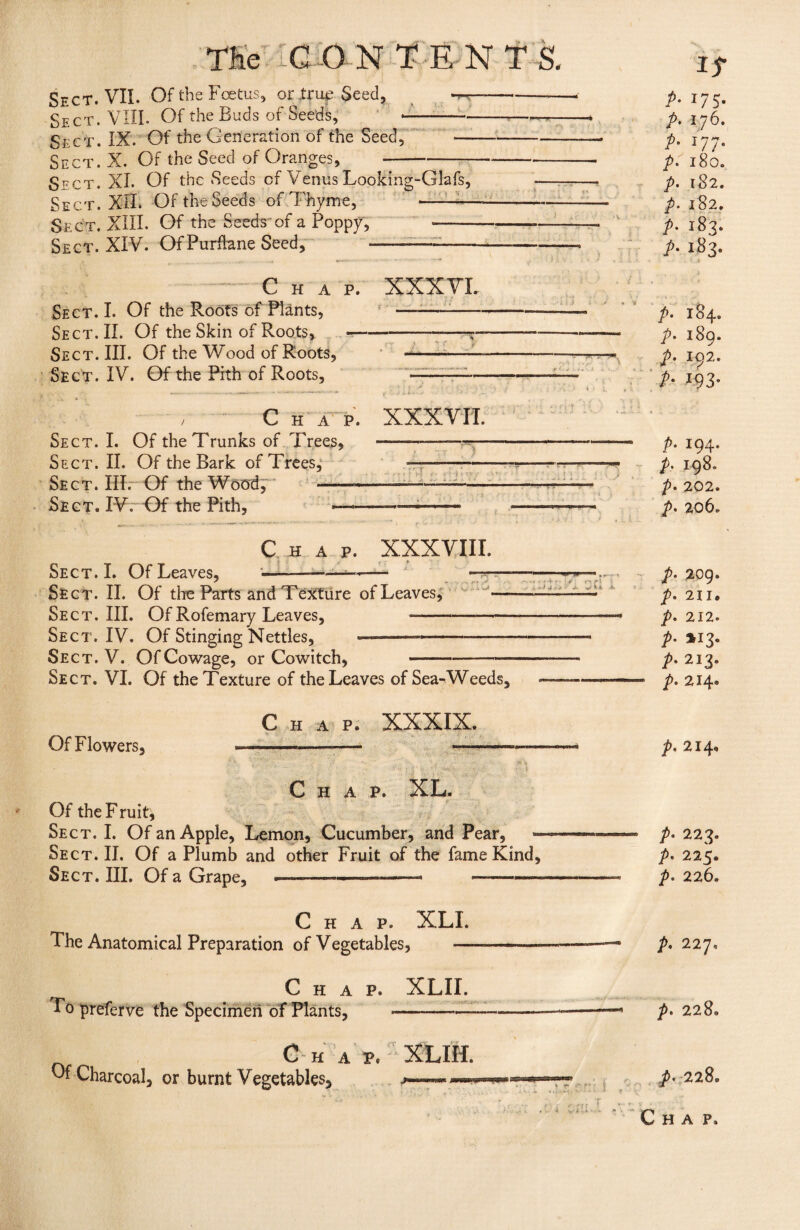 The CONTENTS. 15
SECT. VII. Of the Foetus, or true Seed, p. 175.
SECT. VIII. Of the Buds of Seeds, p. 176.
SECT. IX. Of the Generation of the Seed, p. 177.
SECT. X. Of the Seed of Oranges, p. 180.
SECT. XI. Of the Seeds of Venus Looking-Glaſs, p. 182.
SECT. XII. Of the Seeds of Thyme, p. 182.
SECT. XIII. Of the Seeds of a Poppy, p. 183.
SECT. XIV. Of Purſlane Seed, p. 183.
CHAP. XXXVI.
SECT. I. Of the Roots of Plants, p. 184.
SECT. II. Of the Skin of Roots, p. 189.
SECT. III. Of the Wood of Roots, p. 192.
SECT. IV. Of the Pith of Roots, p. 193.
CHAP. XXXVII.
SECT. I. Of the Trunks of Trees, p. 194.
SECT. II. Of the Bark of Trees, p. 198.
SECT. III. Of the Wood, p. 202.
SECT. IV. Of the Pith, p. 206.
CHAP. XXXVIII.
SECT. I. Of Leaves, p. 209.
SECT. II. Of the Parts and Texture of Leaves, p. 211.
SECT. III. Of Roſemary Leaves, p. 212.
SECT. IV. Of Stinging Nettles, p. 213.
SECT. V. Of Cowage, or Cowitch, p. 213.
SECT. VI. Of the Texture of the Leaves of Sea-Weeds, p. 214.
CHAP. XXXIX.
Of Flowers, p. 214.
CHAP. XL.
Of the Fruit,
SECT. I. Of an Apple, Lemon, Cucumber, and Pear, p. 223.
SECT. II. Of a Plumb and other Fruit of the ſame Kind, p. 225.
SECT. III. Of a Grape, p. 226.
CHAP. XLI.
The Anatomical Preparation of Vegetables, p. 227.
CHAP. XLII.
To preſerve the Specimen of Plants, p. 228.
CHAP. XLIII.
Of Charcoal, or burnt Vegetables, p. 228.
CHAP.